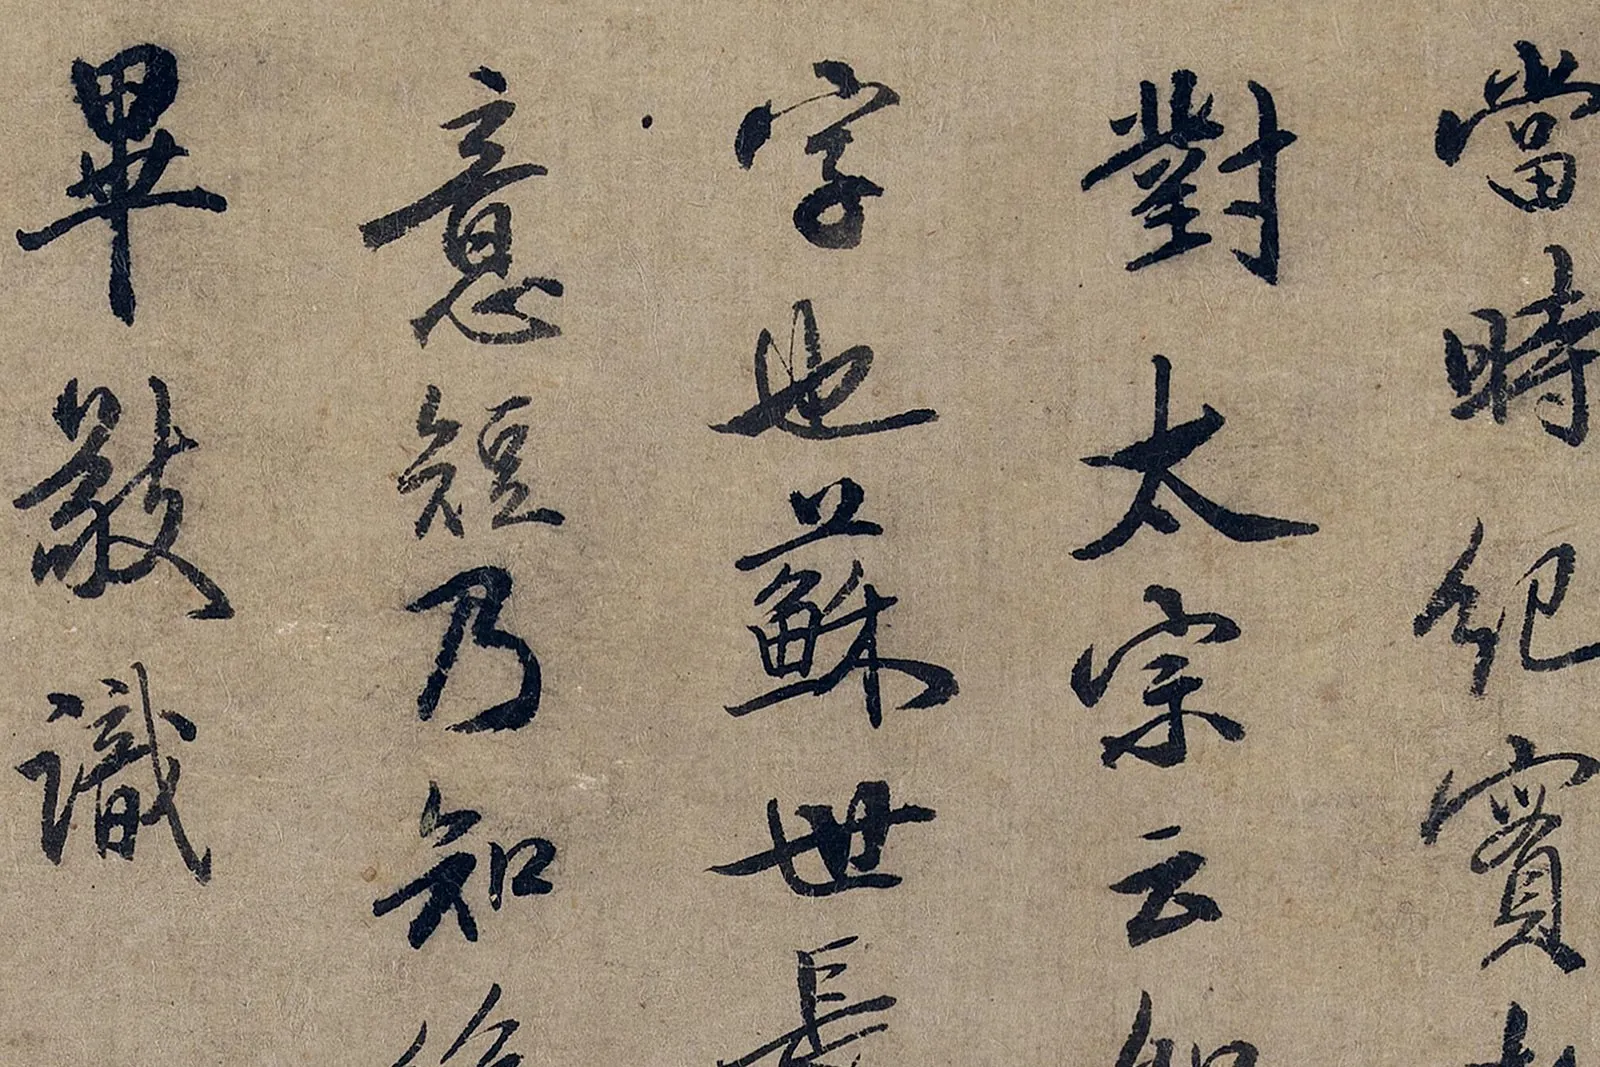 當時紀實
對太宗云
字也蘇世長
意短乃知
畢敬識